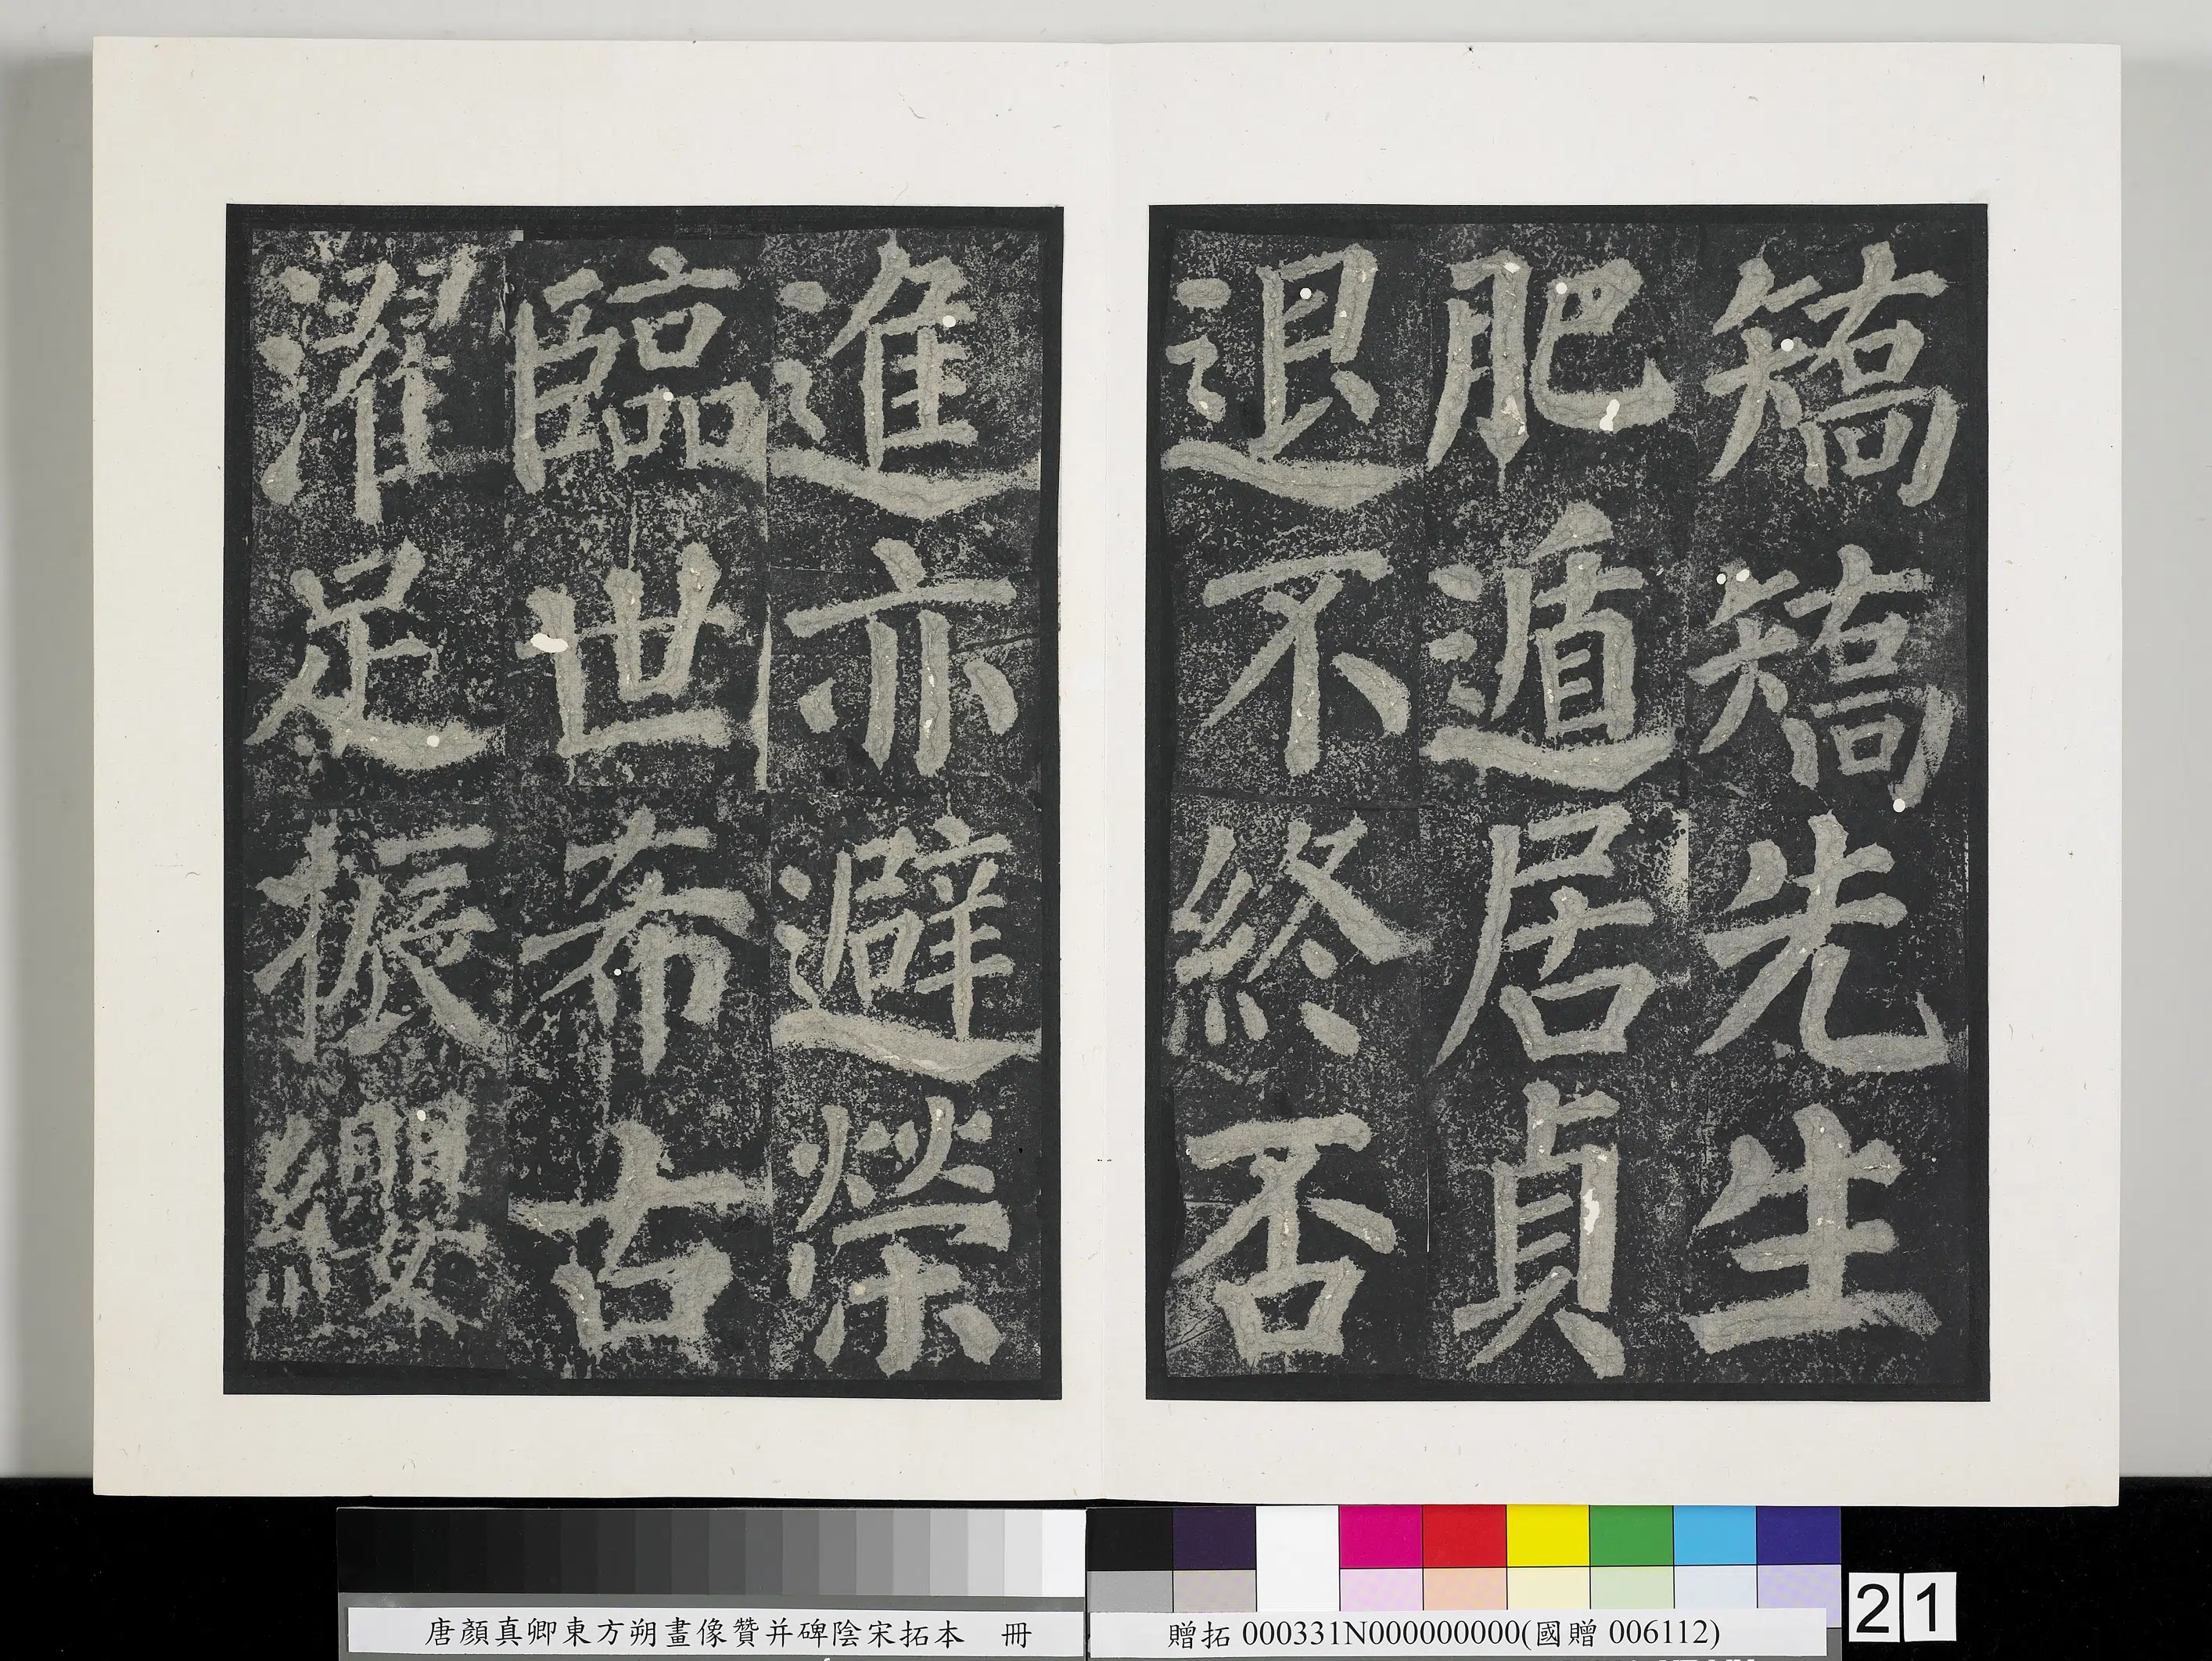 矯矯先生
肥遁居貞
退不終否
進亦避榮
臨世希古
濯足振纓
唐顏真卿東方朔畫像贊并碑陰宋拓本 冊
贈拓 000331N000000000(國贈 006112)
21